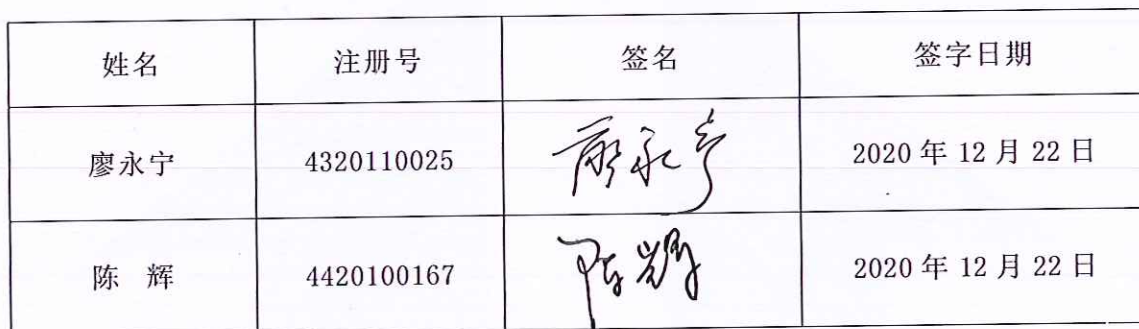 姓名 注册号 签名 签字日期
廖永宁 4320110025 廖永宁 2020 年 12 月 22 日
陈 辉 4420100167 陈辉 2020 年 12 月 22 日